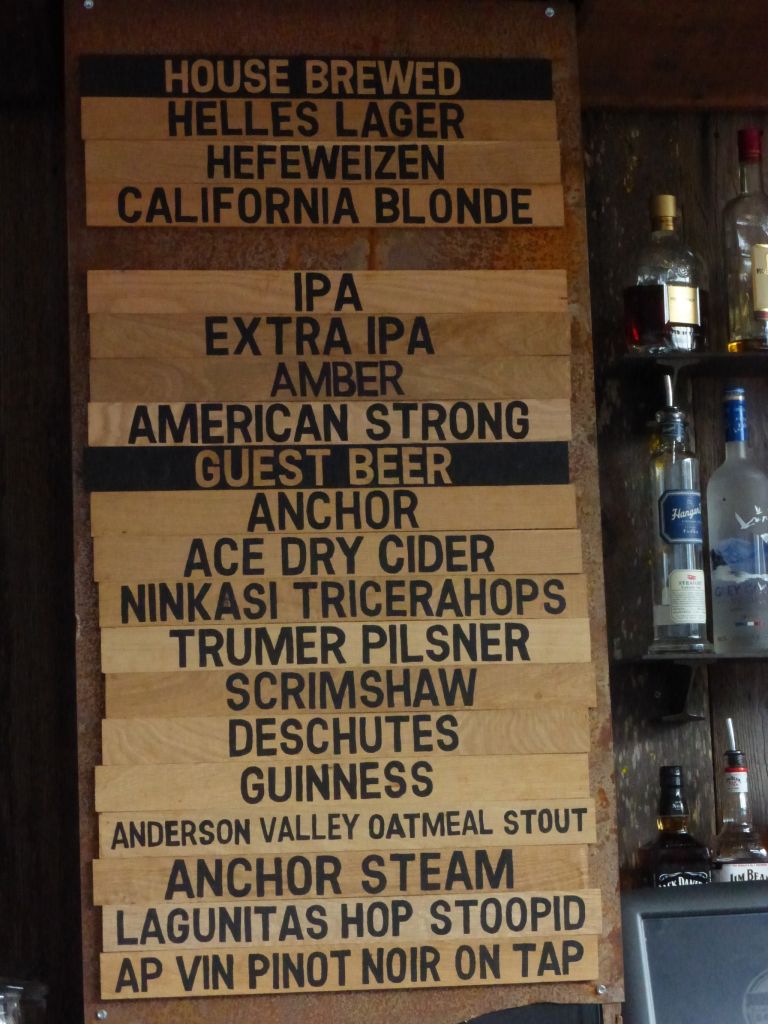 HOUSE BREWED
HELLES LAGER
HEFEWEIZEN
CALIFORNIA BLONDE
IPA
EXTRA IPA
AMBER
AMERICAN STRONG
GUEST BEER
ANCHOR
ACE DRY CIDER
NINKASI TRICERAHOPS
TRUMER PILSNER
SCRIMSHAW
DESCHUTES
GUINNESS
ANDERSON VALLEY OATMEAL STOUT
ANCHOR STEAM
LAGUNITAS HOP STOOPID
AP VIN PINOT NOIR ON TAP